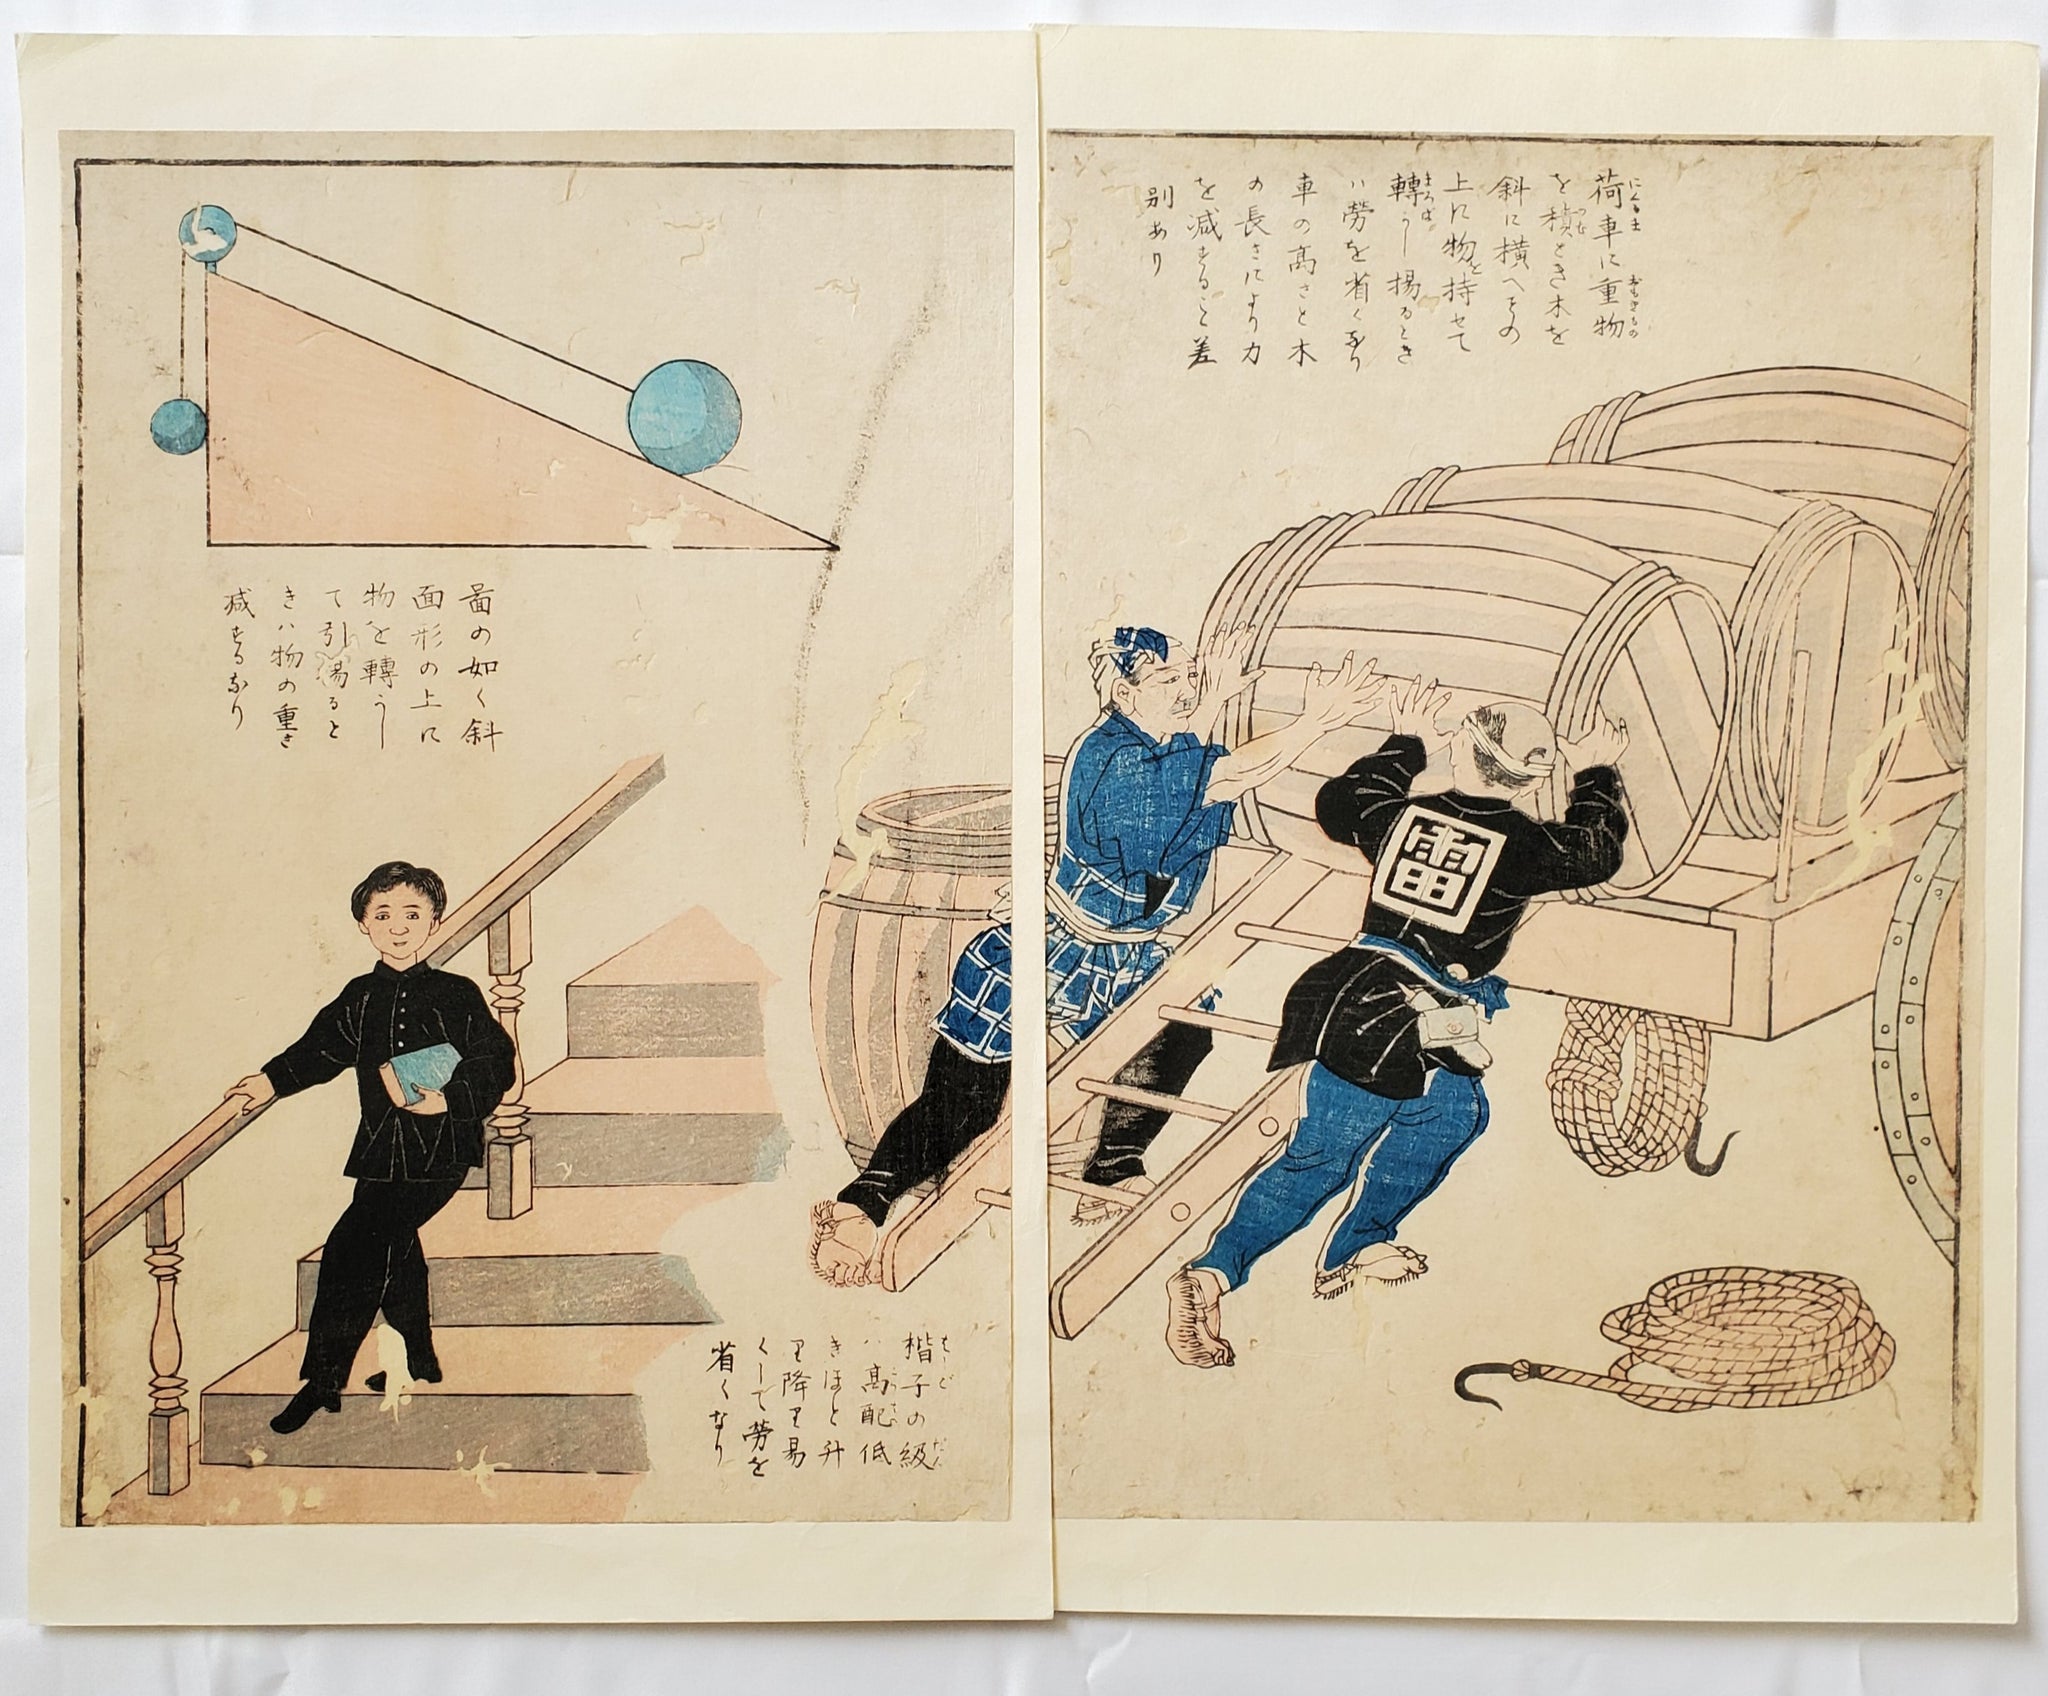 荷車に重物
を積とき木を
斜に横へその
上に物を持せて
轉うし揚るとき
ハ勞を省くなり
車の高さと木
の長さにより力
を減ずること差
別あり
啚の如く斜
面形の上に
物を轉うし
て引揚ると
きハ物の重さ
減ずるなり
楷子の級
ハ高配低
きほと升
り降り易
くして勞を
省くなり